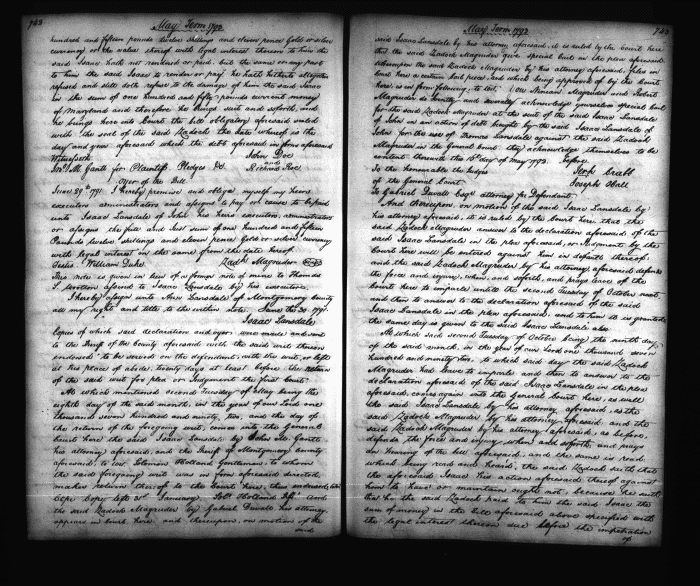 742
May Term 1792
hundred and fifteen pounds twelve shillings and eleven pence Gold or silver
currency or the value thereof with legal interest thereon to him the
said Isaac hath not rendered or paid. but the same or any part
to him the said Isaac to render or pay he hath hitherto altogether
refused and still doth refuse to the damage of him the said Isaac
in the sum of one hundred and fifty pounds current money
of Maryland and therefore he brings suit and soforth, and
he brings here into Court the bill obligatory aforesaid sealed
with the seal of the said Zadock the date whereof is the
day and year aforesaid which the debt aforesaid in form aforesaid
Witnesseth.
John Doe
and
Jno. M. Gantt for Plaintiff Pledges &c
Richard Roe
Oyer of the Bill
June 29th 1791. I hereby promise and oblige myself my heirs
executors administrators and assigns to pay or cause to be paid
unto Isaac Lansdale of John his heirs executors, administrators
or assigns the full and Just sum of one hundred and fifteen
Pounds twelve shillings and eleven pence Gold or silver currency
with legal interest on the same from the date hereof.
Teste William Duke
Zadk Magruder
This note is given in lieu of a former note of mine to Thomas
assigned to Isaac Lansdale by his executors.
I hereby assign unto Lansdale of Montgomery County
all my right and title to the within note. June the 30. 1791.
Isaac Lansdale
Copies of which said declaration and oyer were made and sent
to the Sheriff of the County aforesaid with the said writ thereon
endorsed "to be served on the defendant, with the writ, or left
at his place of abode, twenty days at least before the return
of the said writ for plea or Judgment the first Court.
At which mentioned second Tuesday of May being the
eighth day of the said month, in the year of our Lord one
thousand seven hundred and ninety, two, and the day of
the return of the foregoing writ, comes into the General
Court here the said Isaac Lansdale by John M. Gantt
his attorney aforesaid, and the Sheriff of Montgomery County
aforesaid, to wit, Solomon Holland Gentleman, to whom
the said foregoing writ was in form aforesaid directed,
makes return thereof to the Court here, thus endorsed, to wit
"Cepi Copy left 31st January, Solo Holland Shff." And
the said Zadock Magruder by Gabriel Duvall his attorney
appears in Court here, and thereupon, on motion of the
said
May Term 1792
743
said Isaac Lansdale by his attorney aforesaid, it is ruled by the Court here
that the said Zadock Magruder give special bail in the plea aforesaid.
Whereupon the said Zadock Magruder by his attorney aforesaid, files in
Court here a certain bail piece, and which being approved of by the Court
here, is in form following, to wit:
Magruder and Robert
Magruder do jointly and severally acknowledge yourselves special bail
for the said Zadock Magruder at the suit of the said Isaac Lansdale
of John in an action of debt brought by the said Isaac Lansdale of
John for the use of Thomas Lansdale against the said Zadock
Magruder in the General Court. they acknowledge themselves to be
content therewith this 16th day of May 1792 before
To the honourable the Judges
of the General Court.
Jerh Crabb
Joseph Hall
To Gabriel Duvall esqr. attorney for Defendant.
And thereupon, on motion of the said Isaac Lansdale by
his attorney aforesaid, it is ruled by the Court here, that the
said Zadock Magruder answer to the declaration aforesaid of the
said Isaac Lansdale in the plea aforesaid, or Judgment by the
Court here will be entered against him in default thereof.
and the said Zadock Magruder by his attorney aforesaid defends
the force and injury, when, and soforth, and prays leave of the
Court here to imparle until the second Tuesday of October next
and then to answer to the declaration aforesaid of the said
Isaac Lansdale in the plea aforesaid, and to him it is granted
the same day is given to the said Isaac Lansdale also
At which said second Tuesday of October being the ninth day
of the said month, in the year of our Lord one thousand seven
hundred and ninety two, to which said day the said Zadock
Magruder had leave to imparle and then to answer to the
declaration aforesaid of the said Isaac Lansdale in the plea
aforesaid, comes again into the General Court here, as well
the said Isaac Lansdale by his attorney aforesaid, as the
said Zadock Magruder by his attorney aforesaid, and the
said Zadock Magruder by his attorney aforesaid, as before,
defends the force and injury, when and soforth, and prays
an hearing of the bill aforesaid, and the same is read,
which being read and heard, the said Zadock saith that
the aforesaid Isaac his action aforesaid thereof against
him to have or maintain ought not, because he saith
that he the said Zadock paid to him the said Isaac the
sum of money in the bill aforesaid above specified with
the legal interest thereon due before the impetration
of